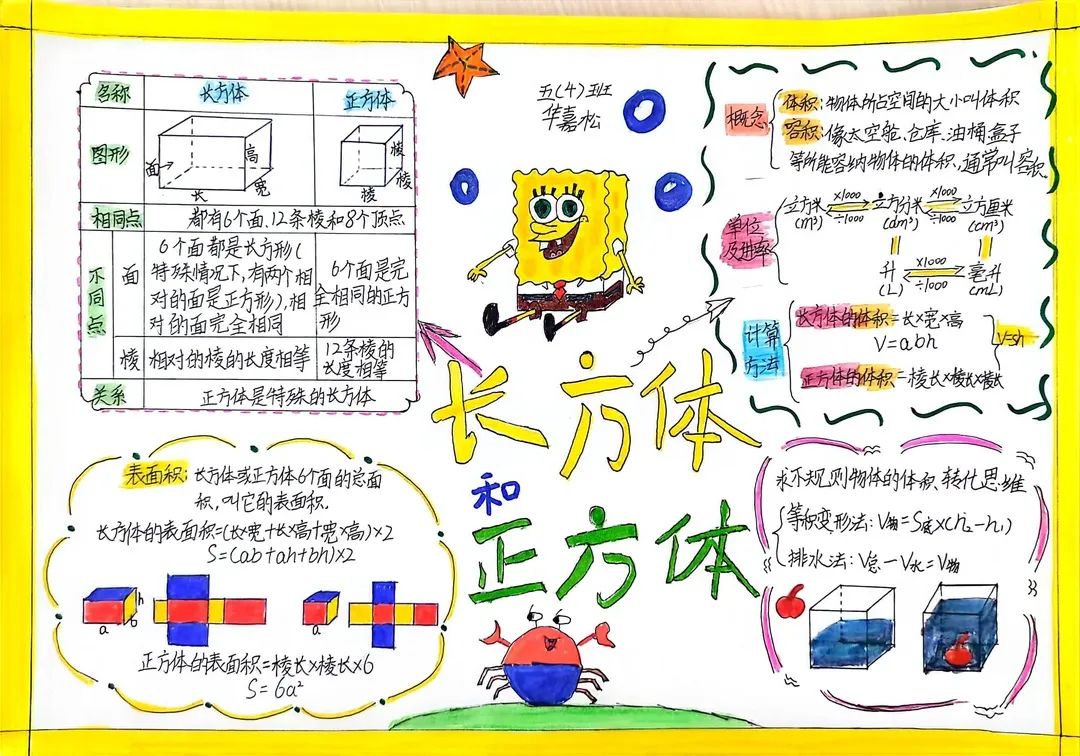 名称 长方体 正方体
图形 面 长 宽 高 棱 棱 棱
相同点 都有6个面、12条棱和8个顶点
不同点
面
6个面都是长方形(
特殊情况下,有两个相
对的面是正方形),相
对的面完全相同
6个面是完
全相同的正方
形
棱 相对的棱的长度相等
12条棱的
长度相等
关系 正方体是特殊的长方体
五(4)班
华嘉松
长方体
和
正方体
概念
体积:物体所占空间的大小叫体积
容积:像太空舱、仓库、油桶、盒子
等所能容纳物体的体积,通常叫容积.
单位
及进率
立方米 ×1000 ÷1000 立方分米 ×1000 ÷1000 立方厘米
(m³) (dm³) (cm³)
升 ×1000 ÷1000 毫升
(L) (mL)
计算
方法
长方体的体积=长×宽×高
V=abh
正方体的体积=棱长×棱长×棱长
V=sh
表面积:长方体或正方体6个面的总面
积,叫它的表面积.
长方体的表面积=(长×宽+长×高+宽×高)×2
S=(ab+ah+bh)×2
a b h
a
正方体的表面积=棱长×棱长×6
S=6a²
求不规则物体的体积 转化思维
等积变形法:V物=S底×(h₂-h₁)
排水法:V总-V水=V物